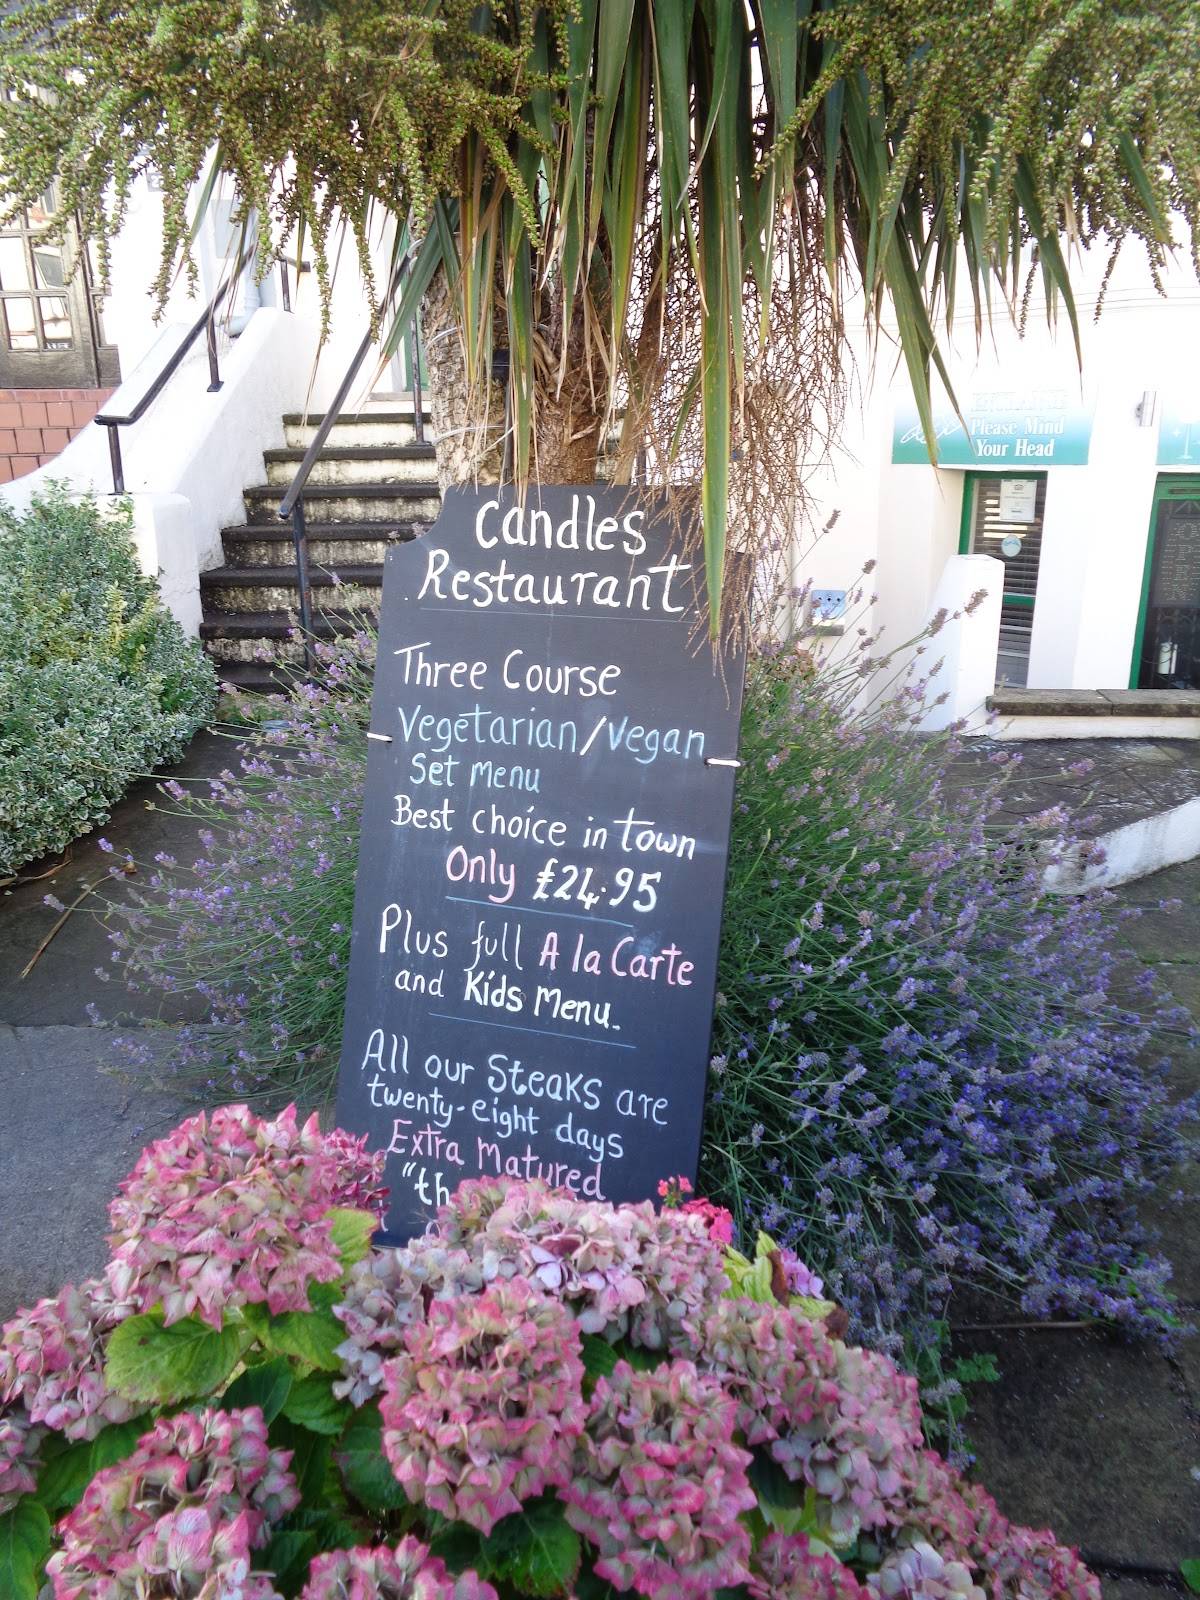 Candles
Restaurant
Three Course
Vegetarian/Vegan
Set Menu
Best choice in town
Only £24.95
Plus full A la Carte
and Kids Menu.
All our Steaks are
twenty-eight days
Extra Matured
"th
Please Mind
Your Head